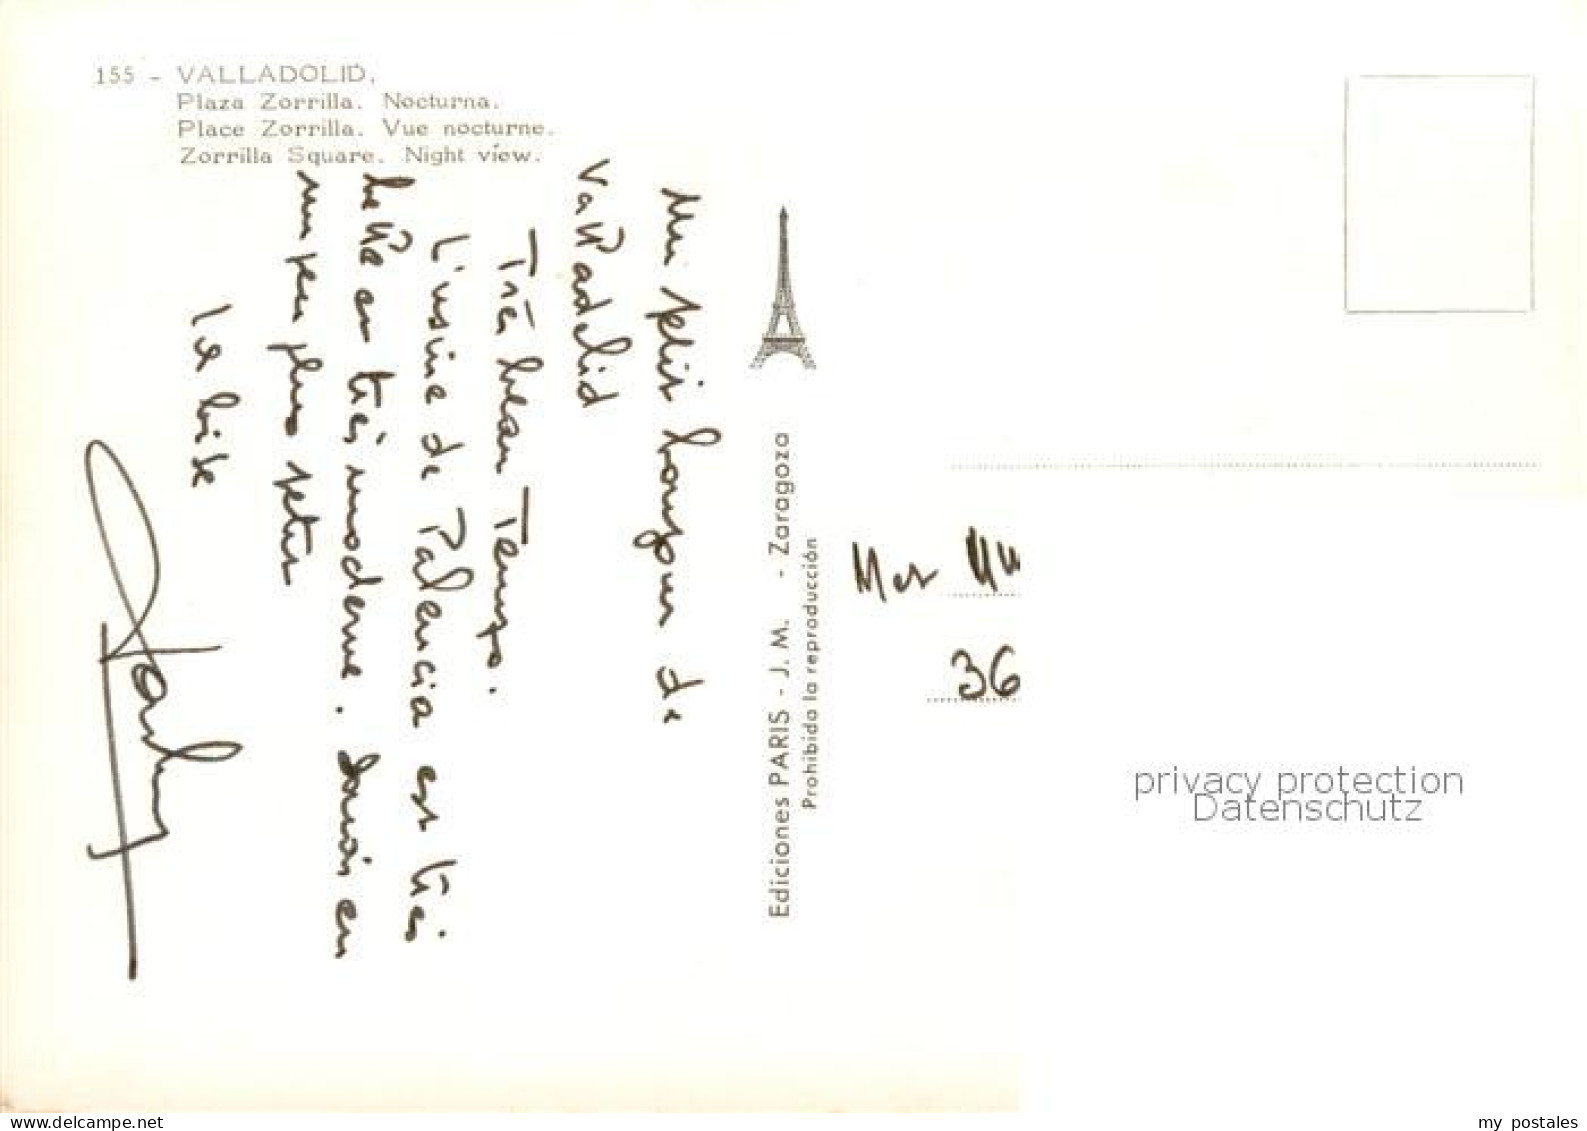 155 - VALLADOLID.
Plaza Zorrilla. Nocturna.
Place Zorrilla. Vue nocturne.
Zorrilla Square. Night view.
Un petit bonjour de
Valladolid
Très beau Temps.
L'usine de Palencia est très
belle et très moderne. Donnée en
un peu plus petit
La bise
Ediciones PARIS - J. M. - Zaragoza
Prohibida la reproducción
36
privacy protection
Datenschutz
www.delcampe.net
my postales